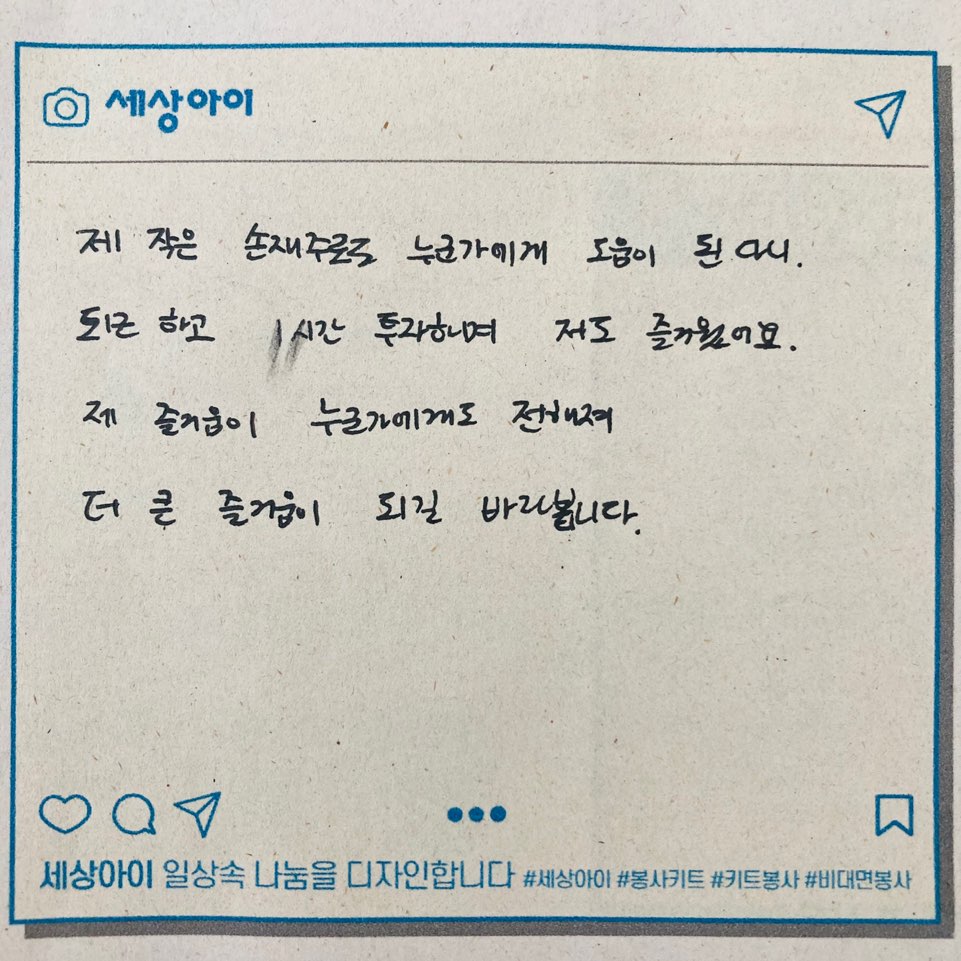 세상아이
제 작은 손재주로도 누군가에게 도움이 된다니.
퇴근 하고 1시간 투자하며 저도 즐거웠어요.
제 즐거움이 누군가에게도 전해져
더 큰 즐거움이 되길 바라봅니다.
세상아이 일상속 나눔을 디자인합니다 #세상아이 #봉사키트 #키트봉사 #비대면봉사